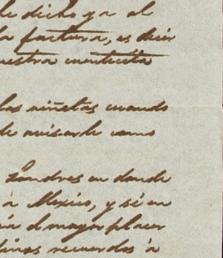 le dicho ya al
la factura, es decir
nuestra cuentecita
las viñetas cuando
de avisarle como
Londres en donde
á Mexico, y si en
el mayor placer
finos recuerdos á